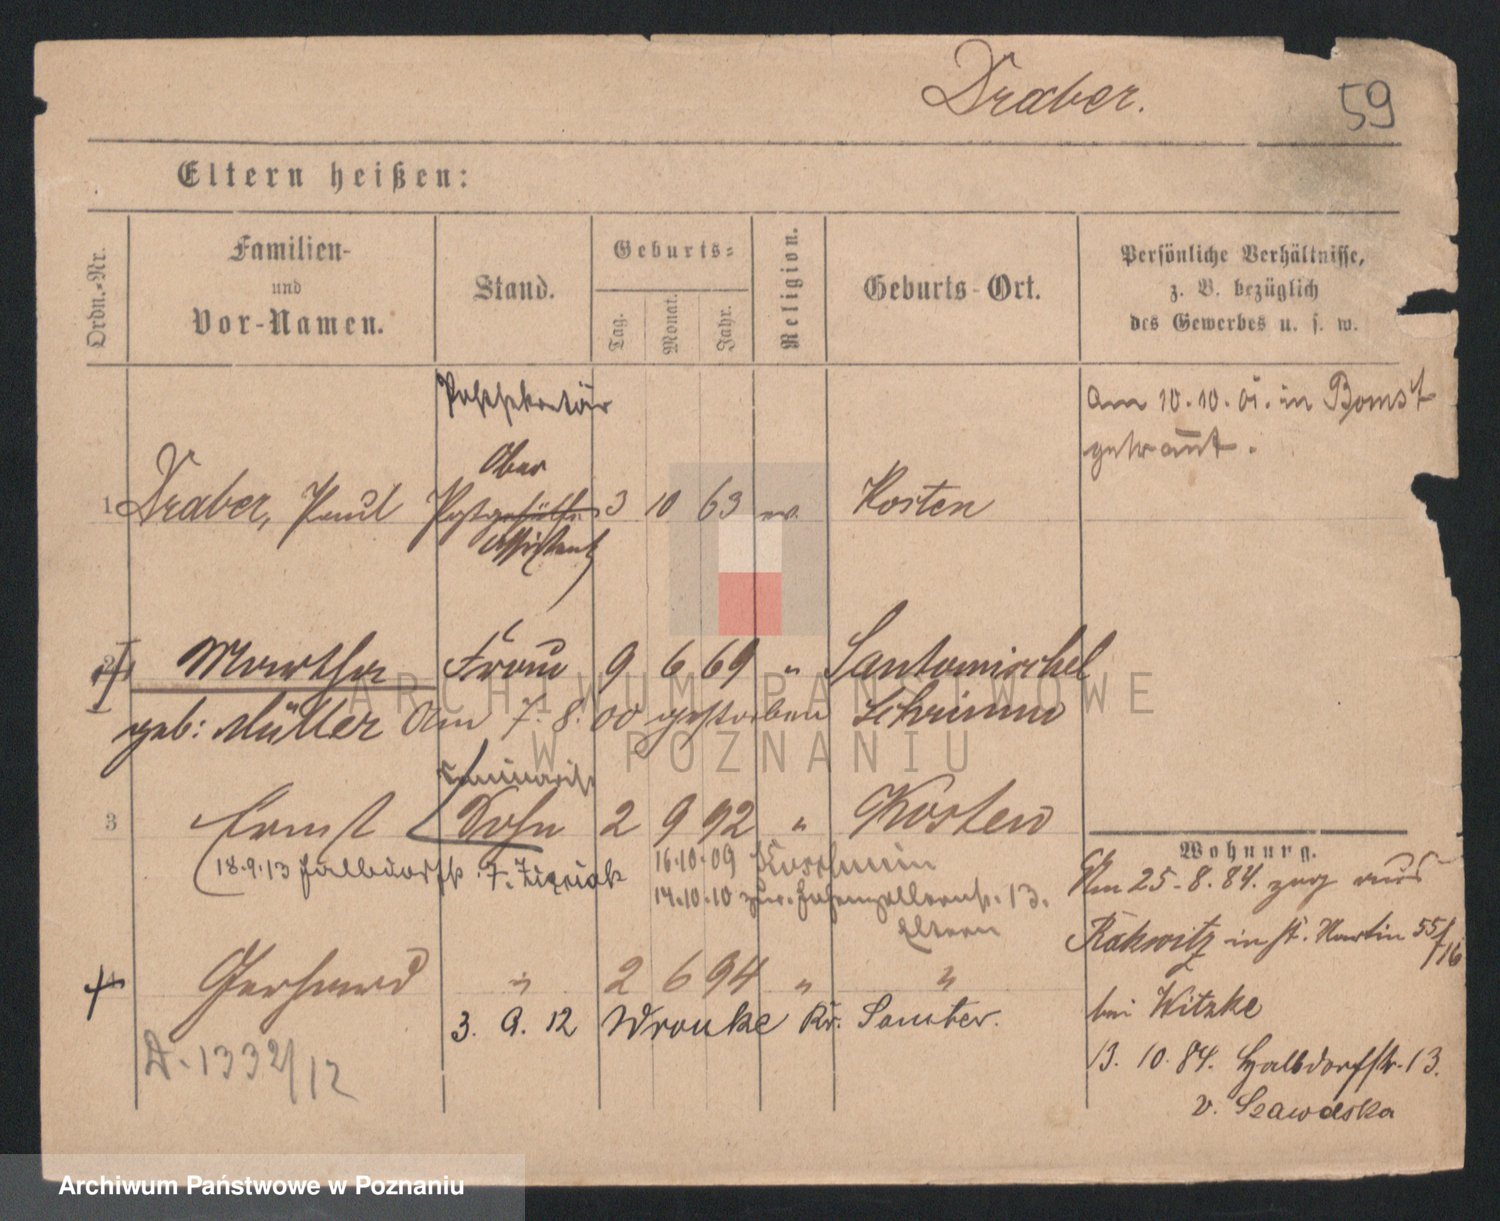 Draber.
59
Eltern heißen:
Ordn.-Nr.
Familien-
und
Vor-Namen.
Stand.
Geburts-
Tag.
Monat.
Jahr.
Religion.
Geburts-Ort.
Persönliche Verhältnisse,
z. B. bezüglich
des Gewerbes u. s. w.
Postsekretär
am 10.10.01. in Bomst
getraut.
Ober
1 Draber, Paul Postgehülfe 3 10 63 ev. Kosten
Assistent
2 Martha Frau 9 6 69 " Santomischel
geb: Müller Am 7. 8. 00 gestorben Schrimm
Seminarist
3 Ernst Sohn 2 9 92 " Kosten
18.9.13 Halbdorfstr. 7.
16.10.09 Koschmin
14.10.10 zur. Hohenzollernstr. 13.
Eltern
Gerhard " 2 6 94 " "
3. 9. 12 Wronke Kr. Samter.
A. 1332/12
Wohnung.
Am 25.8.84. zog aus
Rakwitz in St. Martin 55/56
bei Witzke
13. 10. 84. Halbdorfstr. 13.
v. Szawelska
ARCHIWUM PAŃSTWOWE
W POZNANIU
Archiwum Państwowe w Poznaniu